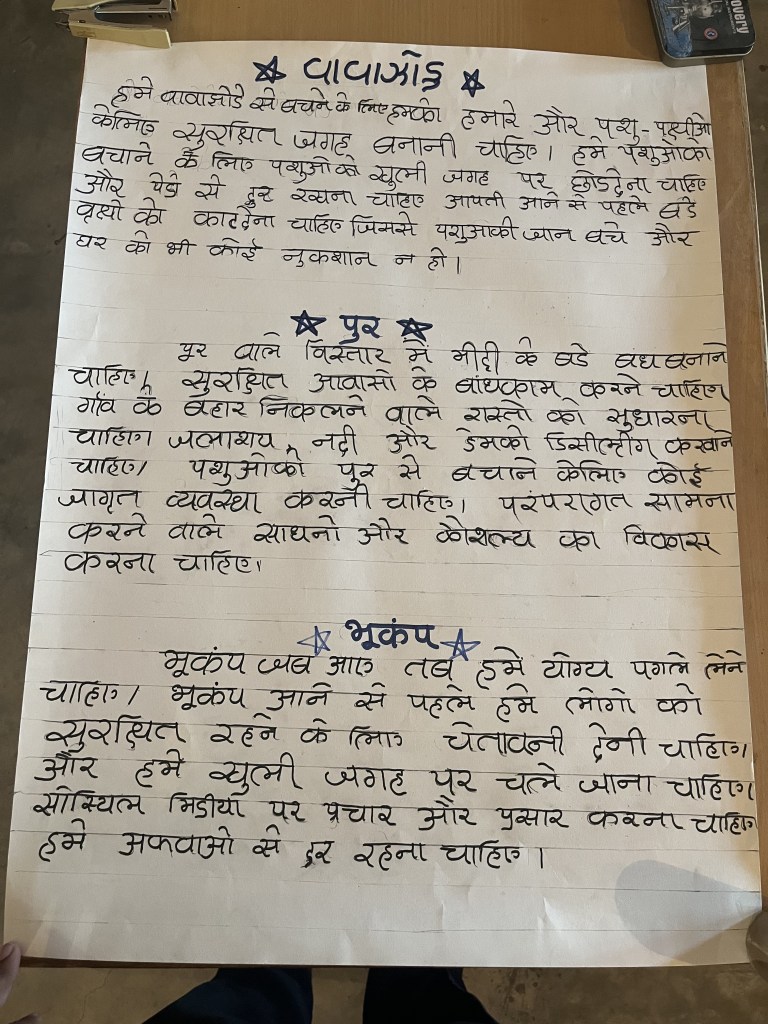 ☆ वावाझोड ☆
हमे वावाझोडे से बचने के लिए हमको हमारे और पशु-पक्षीओ
केलिए सुरक्षित जगह बनानी चाहिए। हमे पशुओको
बचाने के लिए पशुओको खुली जगह पर छोडदेना चाहिए
और पेडो से दुर रखना चाहिए आपती आने से पहले बडे
वृक्षो को काटदेना चाहिए जिससे पशुओकी जान बचे और
घर को भी कोई नुकशान न हो।
☆ पुर ☆
पूर वाले विस्तार में मीट्टी के बडे बंध बनाने
चाहिए, सुरक्षित आवासो के बांधकाम करने चाहिए।
गाँव के बहार निकलने वाले रास्तो को सुधारना
चाहिए। जलाशय, नदी और डेमको डिसील्टींग करवाने
चाहिए। पशुओको पुर से बचाने केलिए कोई
जागृत व्यवस्था करनी चाहिए। परंपरागत सामना
करने वाले साधनो और कौशल्य का विकास
करना चाहिए।
☆ भूकंप ☆
भूकंप जब आए तब हमे योग्य पगले लेने
चाहिए। भूकंप आने से पहले हमे लोगो को
सुरक्षित रहने के लिए चेतावनी देनी चाहिए।
और हमे खुली जगह पर चले जाना चाहिए।
सोस्यिल मिडीया पर प्रचार और प्रसार करना चाहिए।
हमे अफवाओ से दुर रहना चाहिए।